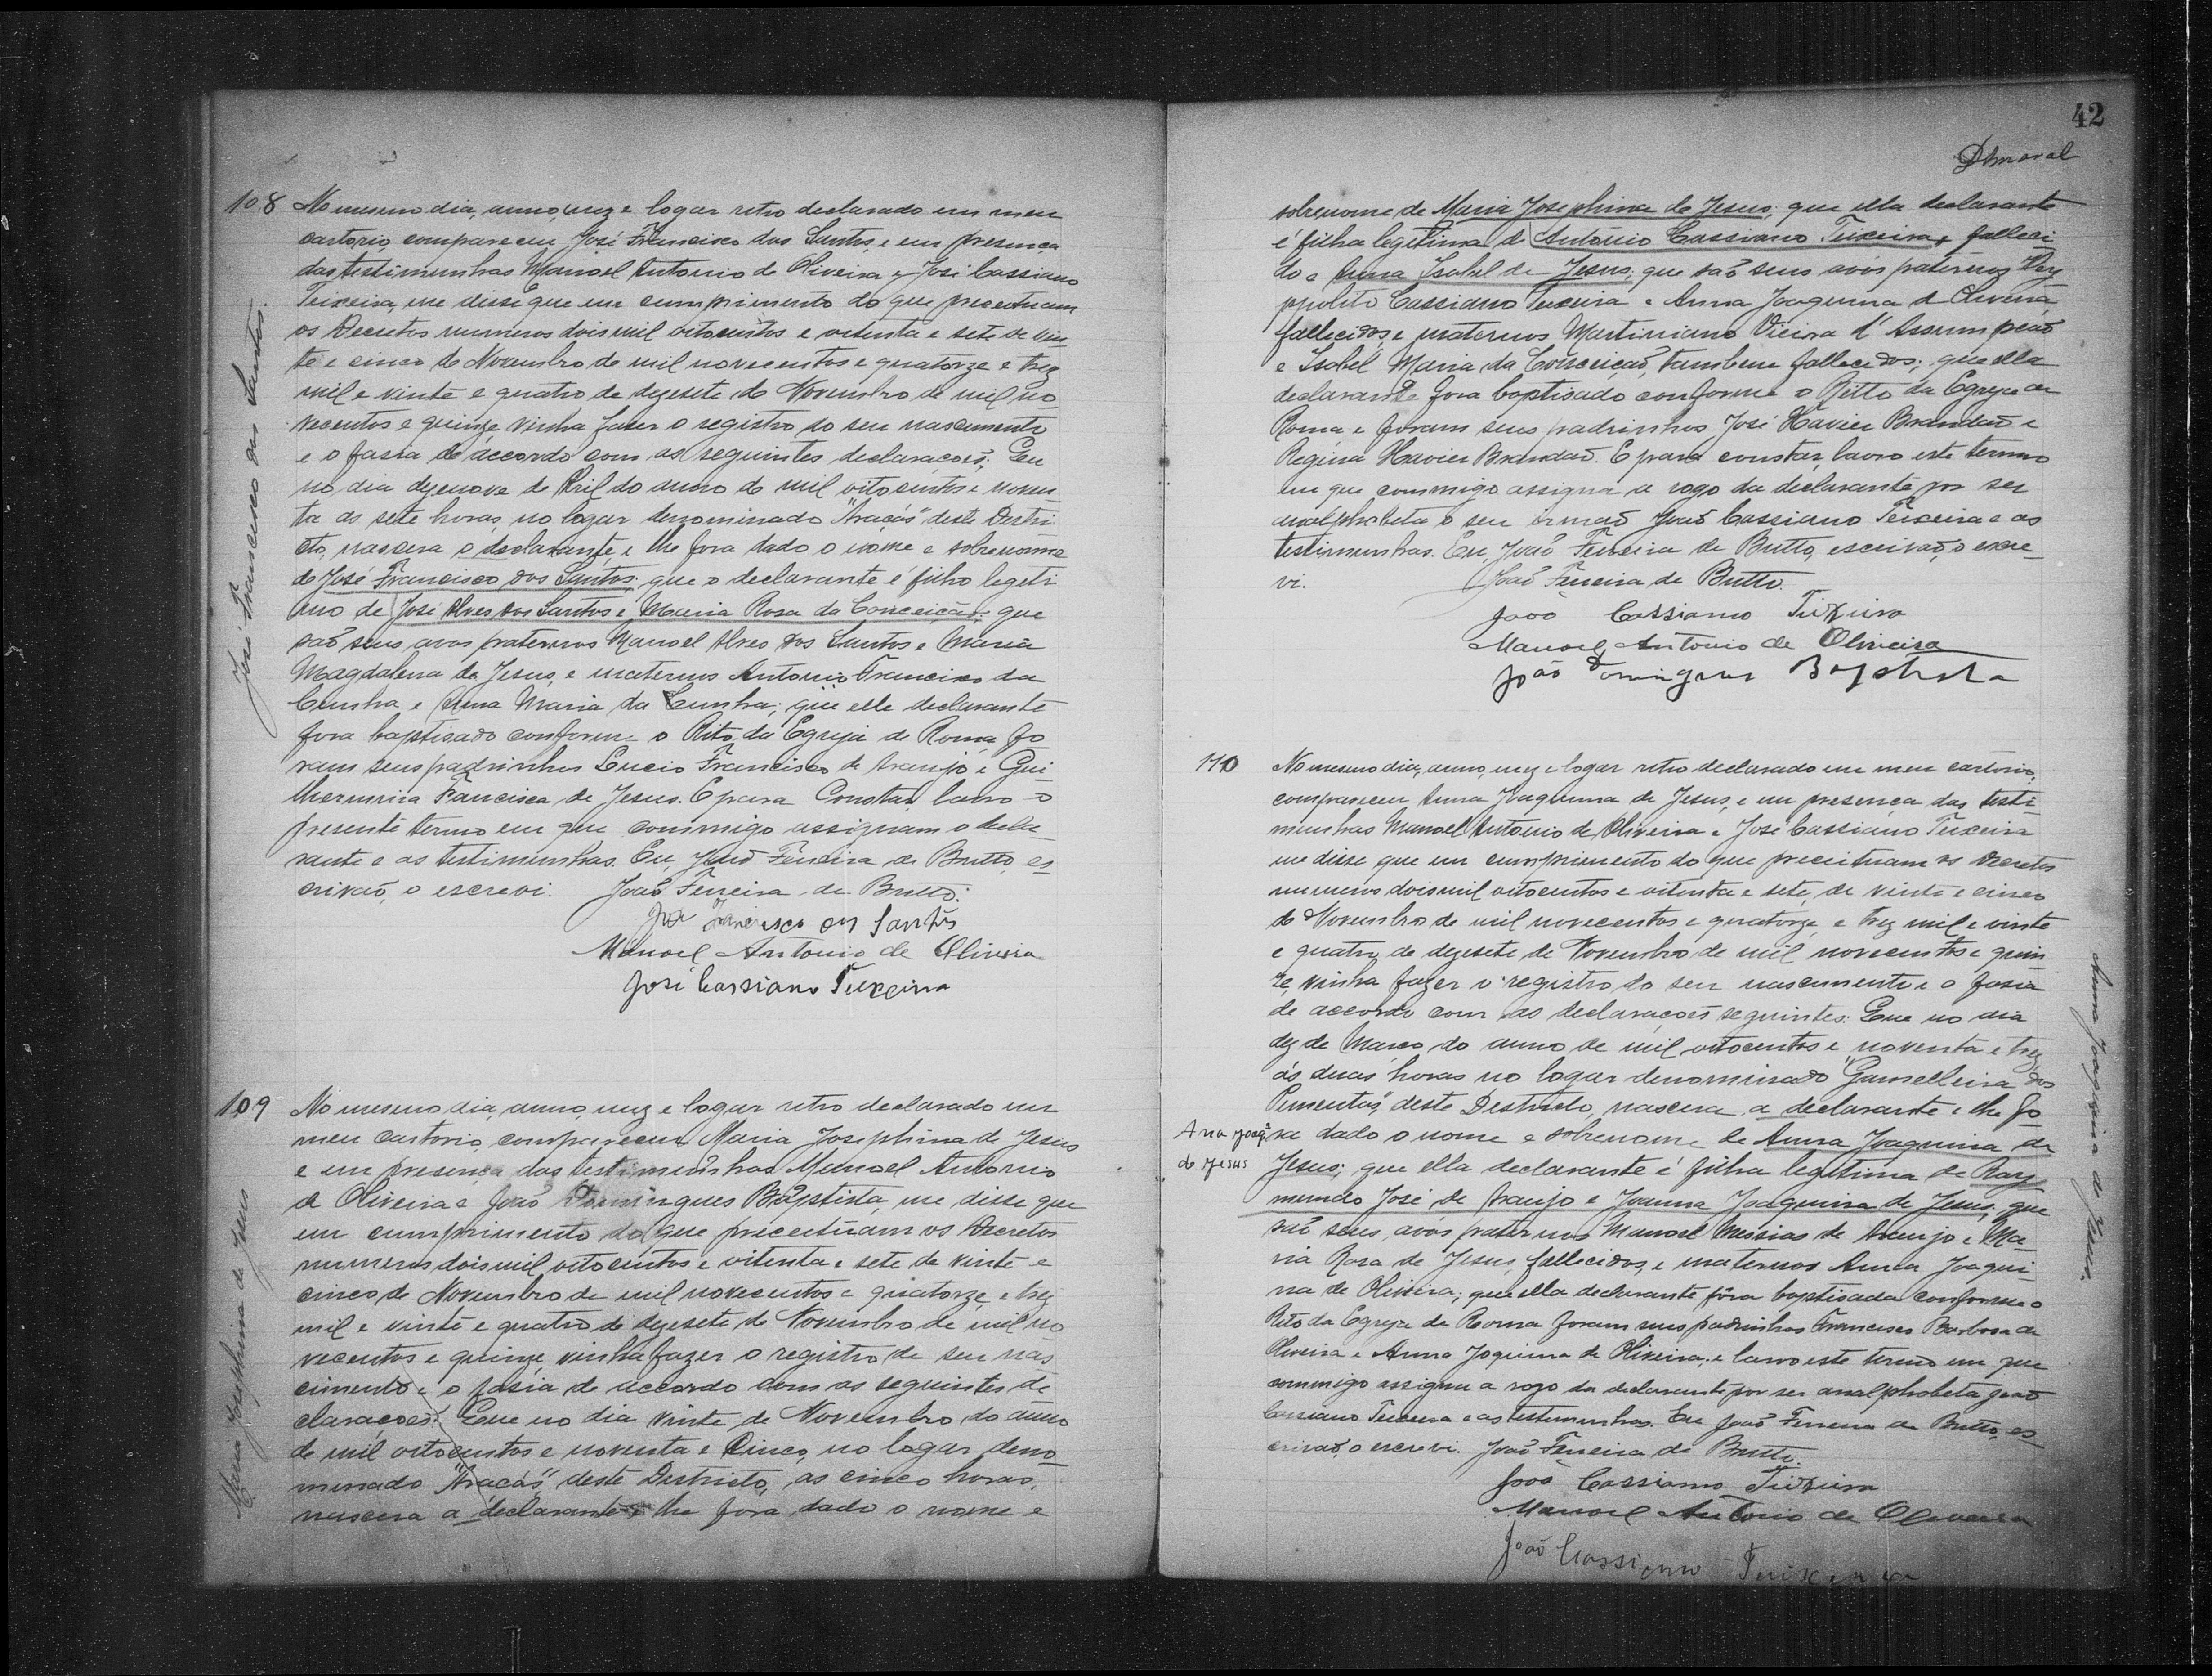 108 No mesmo dia, anno, mez e logar retro declarado em meu
cartorio, compareceu José Francisco dos Santos, e em presença
das testimunhas Manoel Antonio de Oliveira e José Cassiano
Teixeira, me disse que em cumprimento do que preceituam
os Decretos numeros dois mil oitocentos e oitenta e sete de vin
te e cinco de Novembro de mil novecentos e quatorze e trez
mil e vinte e quatro de dezesete de Novembro de mil no
vecentos e quinze vinha fazer o registro do seu nascimento
e o fasia de accordo com as seguintes declarações; Em
no dia dezenove de Abril do anno de mil oitocentos e noven_
ta as sete horas, no logar denominado "Araçás" deste Destri_
cto, nascera o declarante, e lhe fora dado o nome e sobrenome
de José Francisco dos Santos; que o declarante é filho legiti
mo de José Alves dos Santos e Maria Rosa da Conceição; que
são seus avos paternos Manoel Alves dos Santos e Maria
Magdalena de Jesus, e maternos Antonio Francisco da
Cunha e Anna Maria da Cunha; que elle declarante
fora baptisado conforme o Rito da Egreja de Roma fo
ram seus padrinhos Lucio Francisco de Araujo e Gui
lhermina Francisca de Jesus. E para Constar, lavro o
presente termo em que commigo assignam o decla_
rante e as testimunhas. Eu, João Ferreira de Britto, es
crivão, o escrevi. João Ferreira de Britto.
José Francisco dos Santos
Manoel Antonio de Oliveira
José Cassiano Teixeira
José Francisco dos Santos.
109 No mesmo dia, anno, mez e logar retro declarado em
meu cartorio, compareceu Maria Josephina de Jesus
e em presença das testimunhas Manoel Antonio
de Oliveira e João Domingues Baptista, me disse que
em cumprimento do que preceituam os Decretos
numeros dois mil oitocentos e oitenta e sete de vinte e
cinco de Novembro de mil novecentos e quatorze, e trez
mil e vinte e quatro de dezesete de Novembro de mil no
vecentos e quinze, vinha fazer o registro de seu nas
cimento e o fasia de accordo com as seguintes de
clarações: Que no dia vinte de Novembro do anno
de mil oitocentos e noventa e Cinco, no logar deno
minado "Araçás", deste Districto, as cinco horas,
nascera a declarante e lhe fora dado o nome e
Maria Josephina de Jesus
42
Amaral
sobrenome de Maria Josephina de Jesus; que ella declarante
é filha legitima de Antonio Cassiano Teixeira, falleci
do e Anna Isabel de Jesus; que são seus avós paternos Hey
ppolito Cassiano Teixeira e Anna Joaquina de Oliveira,
fallecidos, e maternos Martiniano Vieira d'Assumpção
e Isabel Maria da Conceição, tambem fallecidos; que ella
declarante fora baptisado conforme o Ritto da Egreja de
Roma e foram seus padrinhos José Xavier Brandão e
Regina Xavier Brandão. E para constar, lavro este termo
em que commigo assigna a rogo da declarante por ser
analphabeta o seu irmão João Cassiano Teixeira e as
testimunhas. Eu, João Ferreira de Britto, escrivão, o escre_
vi. João Ferreira de Britto.
João Cassiano Teixeira
Manoel Antonio de Oliveira
João Domingues Baptista
110 No mesmo dia, anno, mez e logar retro declarado em meu cartorio,
compareceu Anna Joaquina de Jesus, e em presença das testi_
munhas Manoel Antonio de Oliveira e José Cassiano Teixeira
me disse que em cumprimento do que preceituam os Decretos
numeros dois mil oitocentos e oitenta e sete, de vinte e cinco
de Novembro de mil novecentos e quatorze, e trez mil e vinte
e quatro de dezesete de Novembro de mil novecentos e quin
ze, vinha fazer o registro do seu nascimento e o fasia
de accordo com as declarações seguintes: Que no dia
dez de Março do anno de mil oitocentos e noventa e trez
ás duas horas no logar denominado "Gamelleira dos
Pimentas", deste Destricto, nascera a declarante e lhe fo
ra dado o nome e sobrenome de Anna Joaquina de
Jesus; que ella declarante é filha legitima de Ray
mundo José de Araujo e Joanna Joaquina de Jesus; que
são seus avos paternos Manoel Messias de Araujo e Ma_
ria Rosa de Jesus, fallecidos, e maternos Anna Joaqui_
na de Oliveira; que ella declarante fôra baptisada conforme o
Rito da Egreja de Roma foram seus padrinhos Francisco Barbosa de
Oliveira e Anna Joquina de Oliveira, e lavro este termo em que
commigo assigna a rogo da declarante por ser analphabeta João
Cassiano Teixeira e as testemunhas. Eu João Ferreira de Britto, es_
crivão, o escrevi. João Ferreira de Britto.
João Cassiano Teixeira
Manoel Antonio de Oliveira
João Cassiano Teixeira
Ana Joaqª
de Jesus
Anna Joaquina de Jesus.